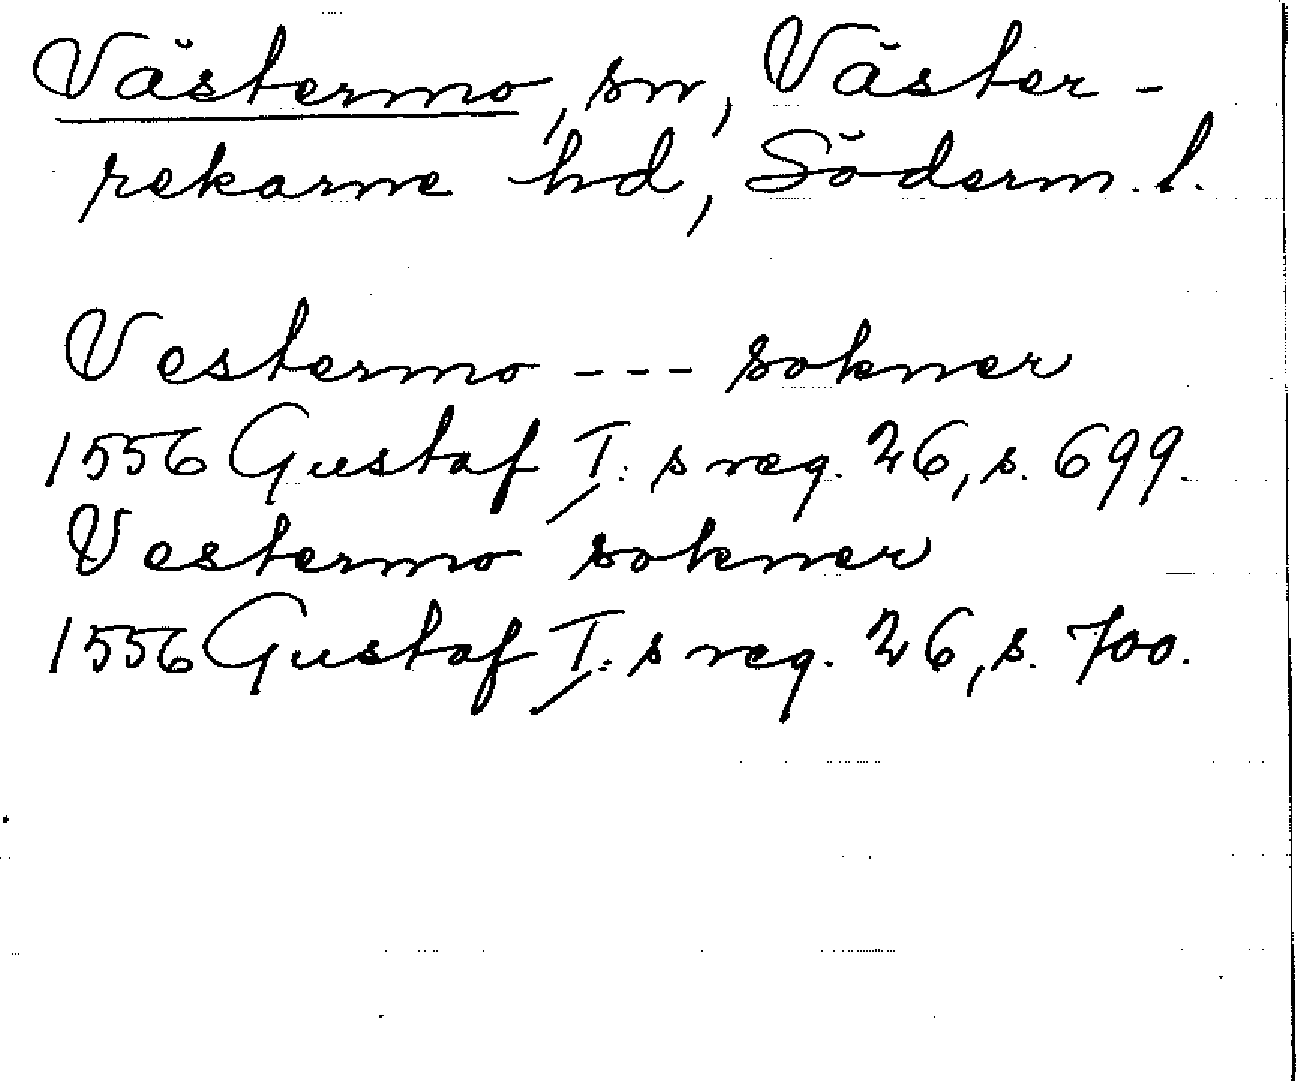 Västermo, sn, Väster-
rekarne hd, Söderm. l.
Vestermo --- sokner
1556 Gustaf I:s reg. 26, s. 699.
Vestermo sokner
1556 Gustaf I:s reg. 26, s. 700.